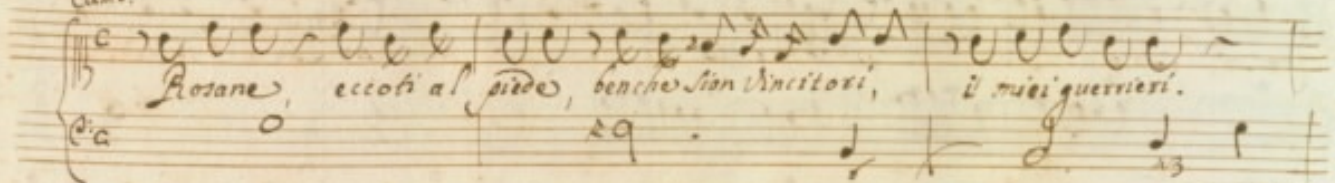 Rosane, eccoti al piede, benche sian Vincitori, i miei guerrieri.